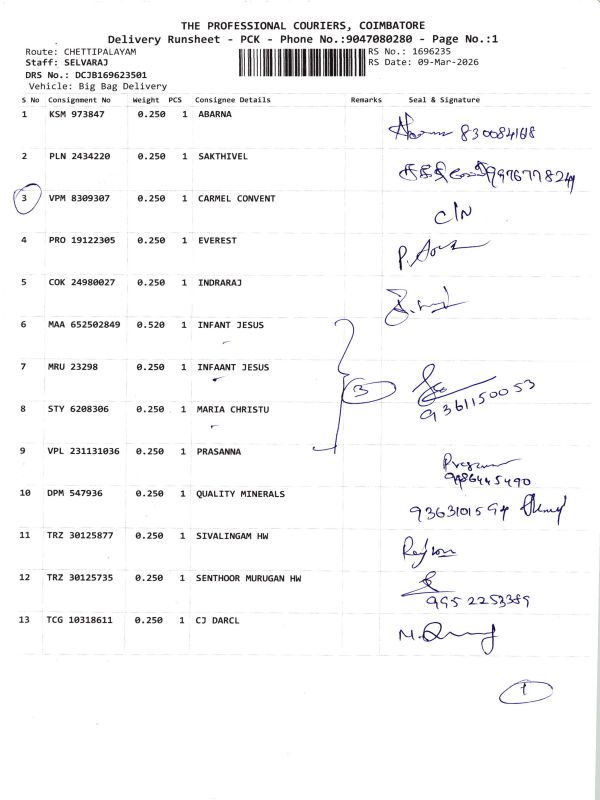 THE PROFESSIONAL COURIERS, COIMBATORE
Delivery Runsheet - PCK - Phone No.:9047080280 - Page No.:1
Route: CHETTIPALAYAM RS No.: 1696235
Staff: SELVARAJ RS Date: 09-Mar-2026
DRS No.: DCJB169623501
Vehicle: Big Bag Delivery
S No Consignment No Weight PCS Consignee Details Remarks Seal & Signature
1 KSM 973847 0.250 1 ABARNA
2 PLN 2434220 0.250 1 SAKTHIVEL
3 VPM 8309307 0.250 1 CARMEL CONVENT
C/N
4 PRO 19122305 0.250 1 EVEREST
5 COK 24980027 0.250 1 INDRARAJ
6 MAA 652502849 0.520 1 INFANT JESUS
7 MRU 23298 0.250 1 INFAANT JESUS
3
9361150053
8 STY 6208306 0.250 1 MARIA CHRISTU
9 VPL 231131036 0.250 1 PRASANNA
9486445490
10 DPM 547936 0.250 1 QUALITY MINERALS
9363101594
11 TRZ 30125877 0.250 1 SIVALINGAM HW
12 TRZ 30125735 0.250 1 SENTHOOR MURUGAN HW
9952253389
13 TCG 10318611 0.250 1 CJ DARCL
1